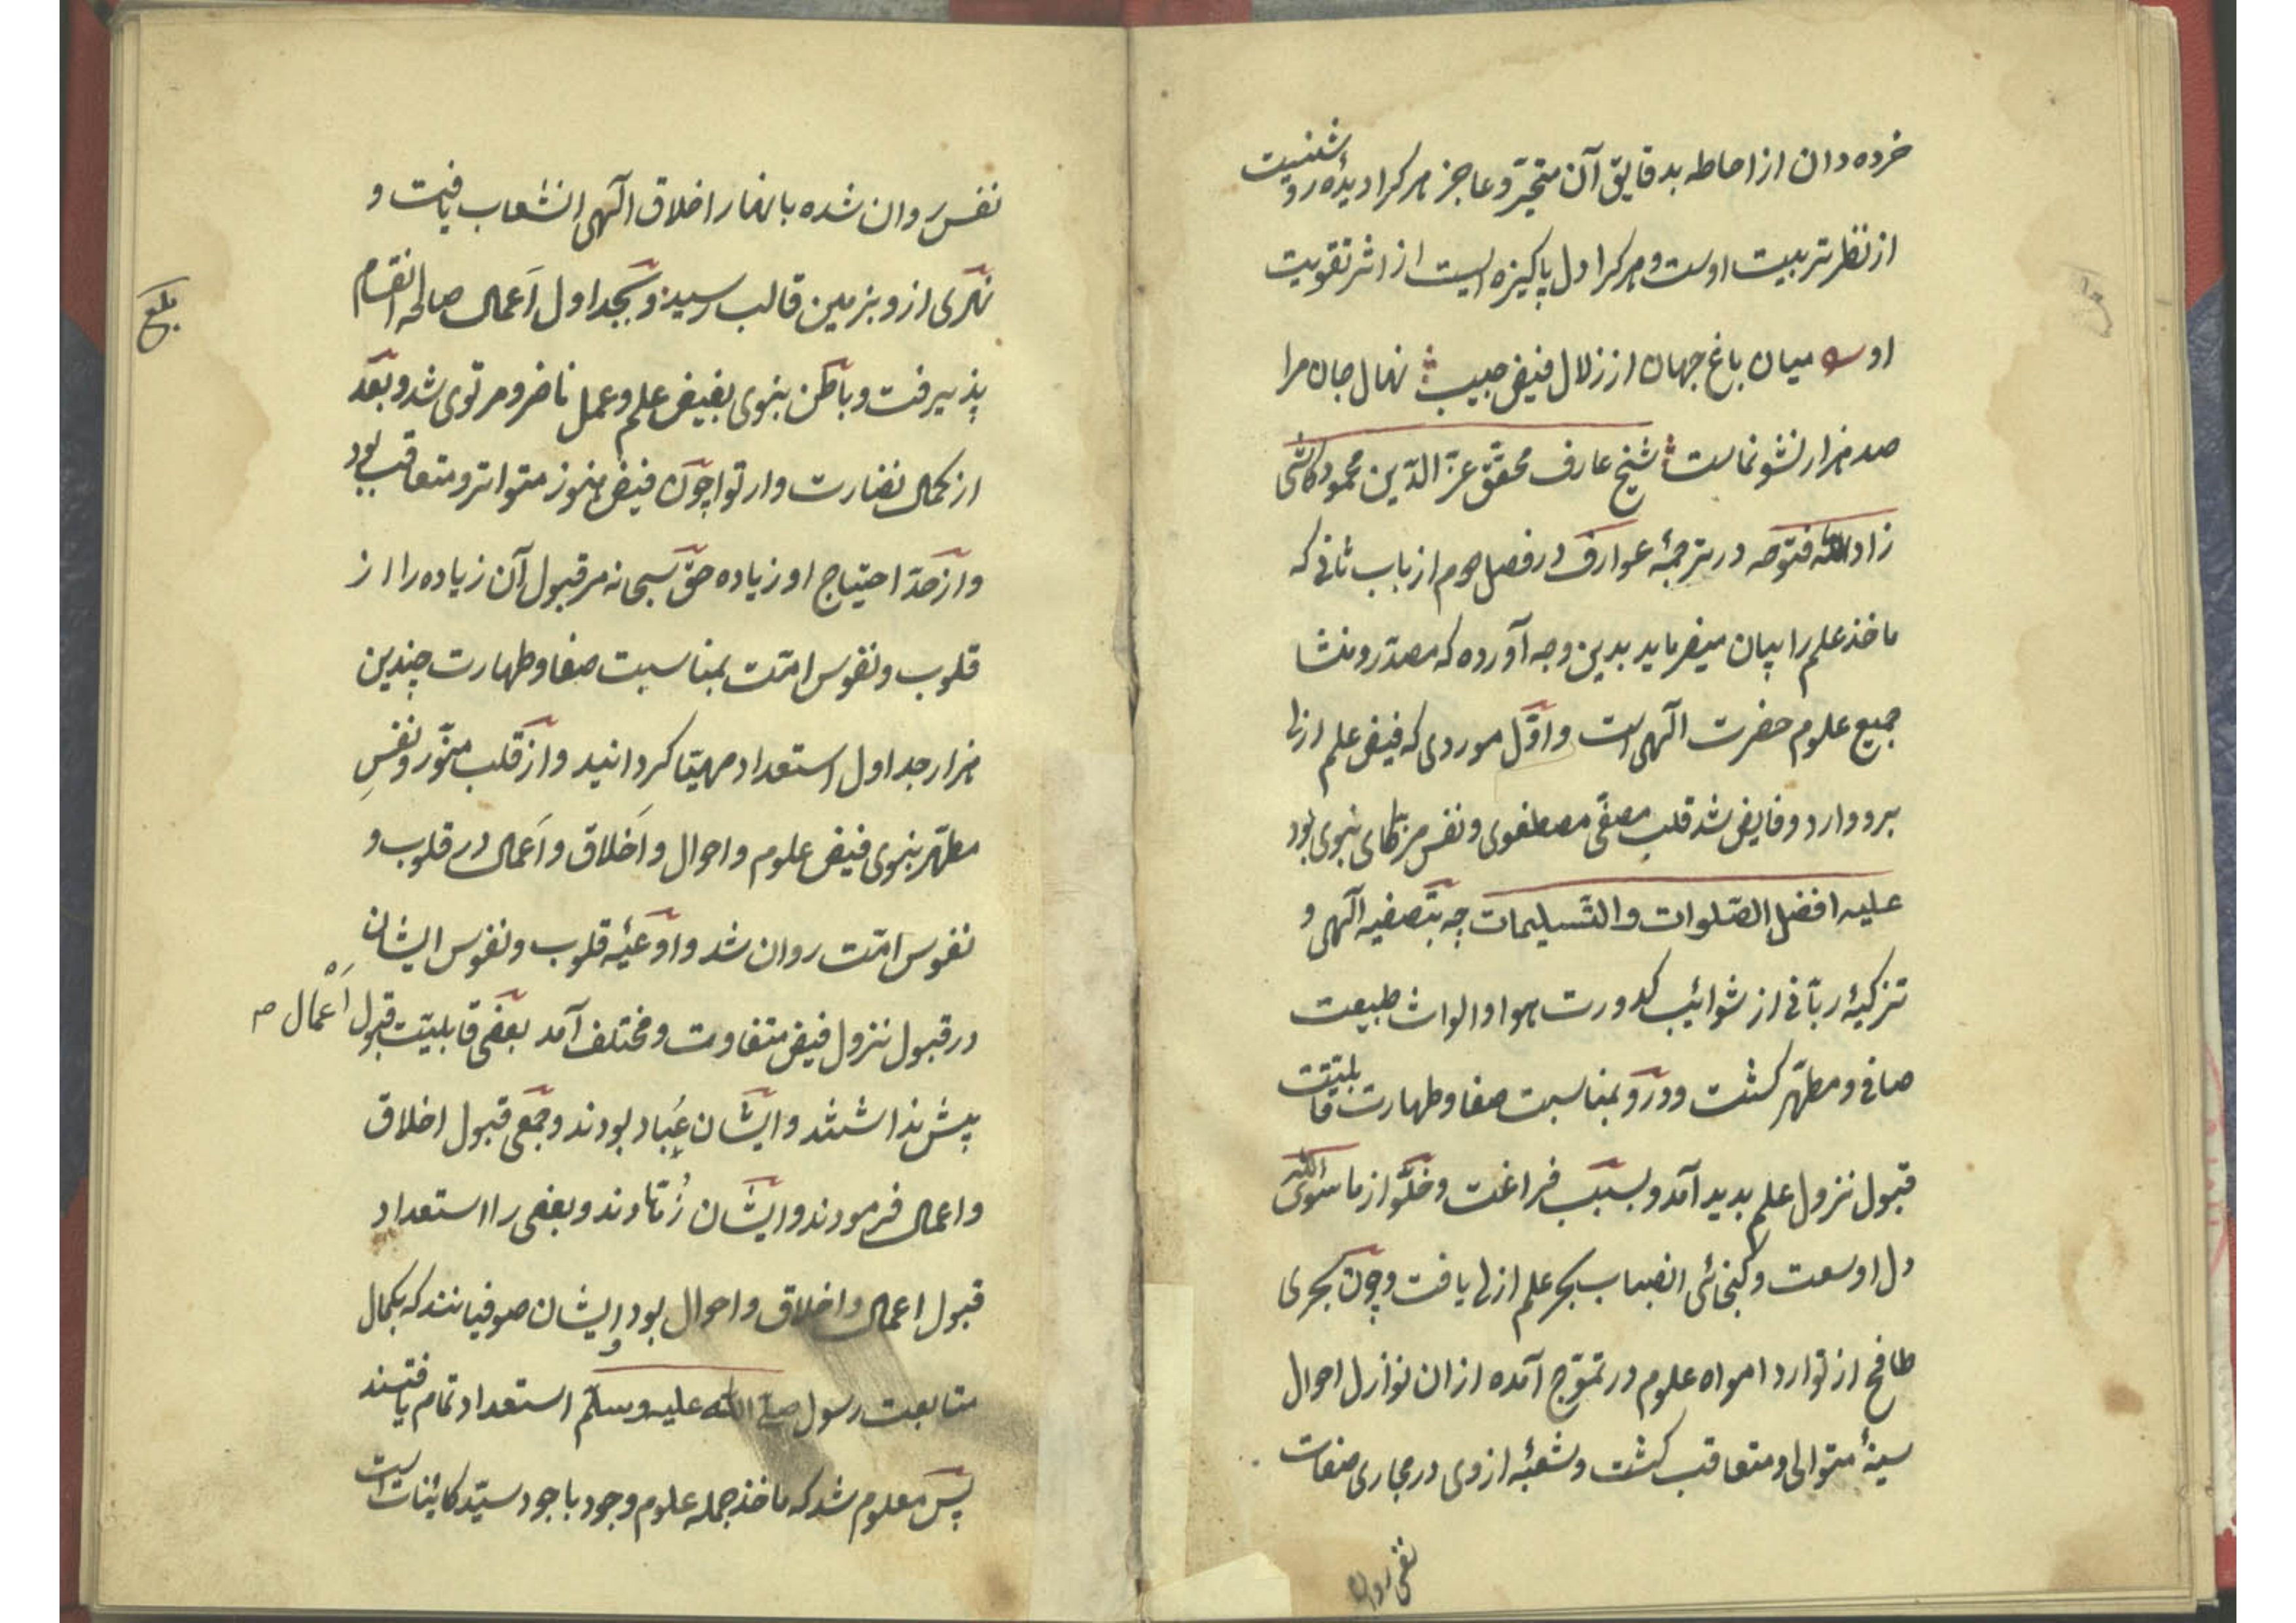 خرده دان از احاطه بدقایق آن متحیّر و عاجز هر کرا دیدهٔ روشنیست
از نظر تربیت اوست و هر کرا دل پاکیزه ایست از اثر تقویت
او میان باغ جهان از زلال فیض حبیب نهال جان مرا
صد هزار نشو نماست شیخ عارف محقّق عزّ الدّین محمود کاشی
زاد الله فتوحه در ترجمهٔ عوارف در فصل دوم از باب ثانی که
ماخذ علم را بیان میفرماید بدین وجه آورده که مصدر و منشا
جمیع علوم حضرت الٓهی است و اوّل موردی که فیض علم ازلی
برو وارد و فایض شد قلب مصفّی مصطفوی و نفس مزکّای نبوی بود
علیه افضل الصّلوات والتّسلیمات چه بتصفیه الٓهی و
تزکیهٔ ربّانی از شوائب کدورت هوا و الواث طبیعت
صافی و مطهّر کشت و درو بمناسبت صفا و طهارت قابلیّت
قبول نزول علم بدید آمد و بسبب فراغت و خلّو از ماسوی الله
دل او سعت و کنجائی انصباب بحر علم ازلی یافت و چون بحری
طافح از توارد امواه علوم در تموّج آمده ازان نوازل احوال
سینهٔ متوالی و متعاقب کشت و شعبهٔ ازوی در مجاری صفات
نفس روان
نفس روان شده بانهار اخلاق الٓهی انشعاب یافت و
نهری ازو بزمین قالب رسید و بجداول اَعمال صالحه انقسام
پذیرفت و باطن نبوی بفیض علم و عمل ناضر و مرتوی شد و بعد
از کمال نضارت و ارتوا چون فیض هنوز متواتر و متعاقب بود
و از حدّ احتیاج او زیاده حقّ سبحانه مر قبول آن زیاده را از
قلوب و نفوس امّت بمناسبت صفا و طهارت چندین
هزار جداول استعداد مهیّا کردانید و از قلب منوّر و نفسِ
مطهّر نبوی فیض علوم و احوال و اَخلاق و اَعمال در قلوب و
نفوس امّت روان شد و اوعیهٔ قلوب و نفوس ایشان
در قبول نزول فیض متفاوت و مختلف آمد بعضی قابلیّت قبول اَعمال
بیش نداشتند و ایشان عُبّاد بودند و جمعی قبول اخلاق
و اعمال فرمودند و ایشان زُهّادند و بعضی را استعداد
قبول اعمال و اخلاق و احوال بود و ایشان صوفیانند که بکمال
متابعت رسول صلّی الله علیه وسلّم استعداد تمام یافتند
پس معلوم شد که ماخذ جمله علوم وجود باجود سیّد کائنات است
بلغ